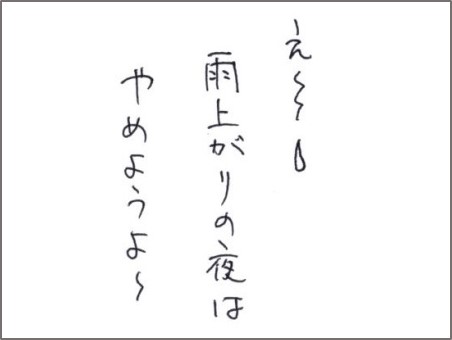 え〜〜
雨上がりの夜は
やめようよ〜